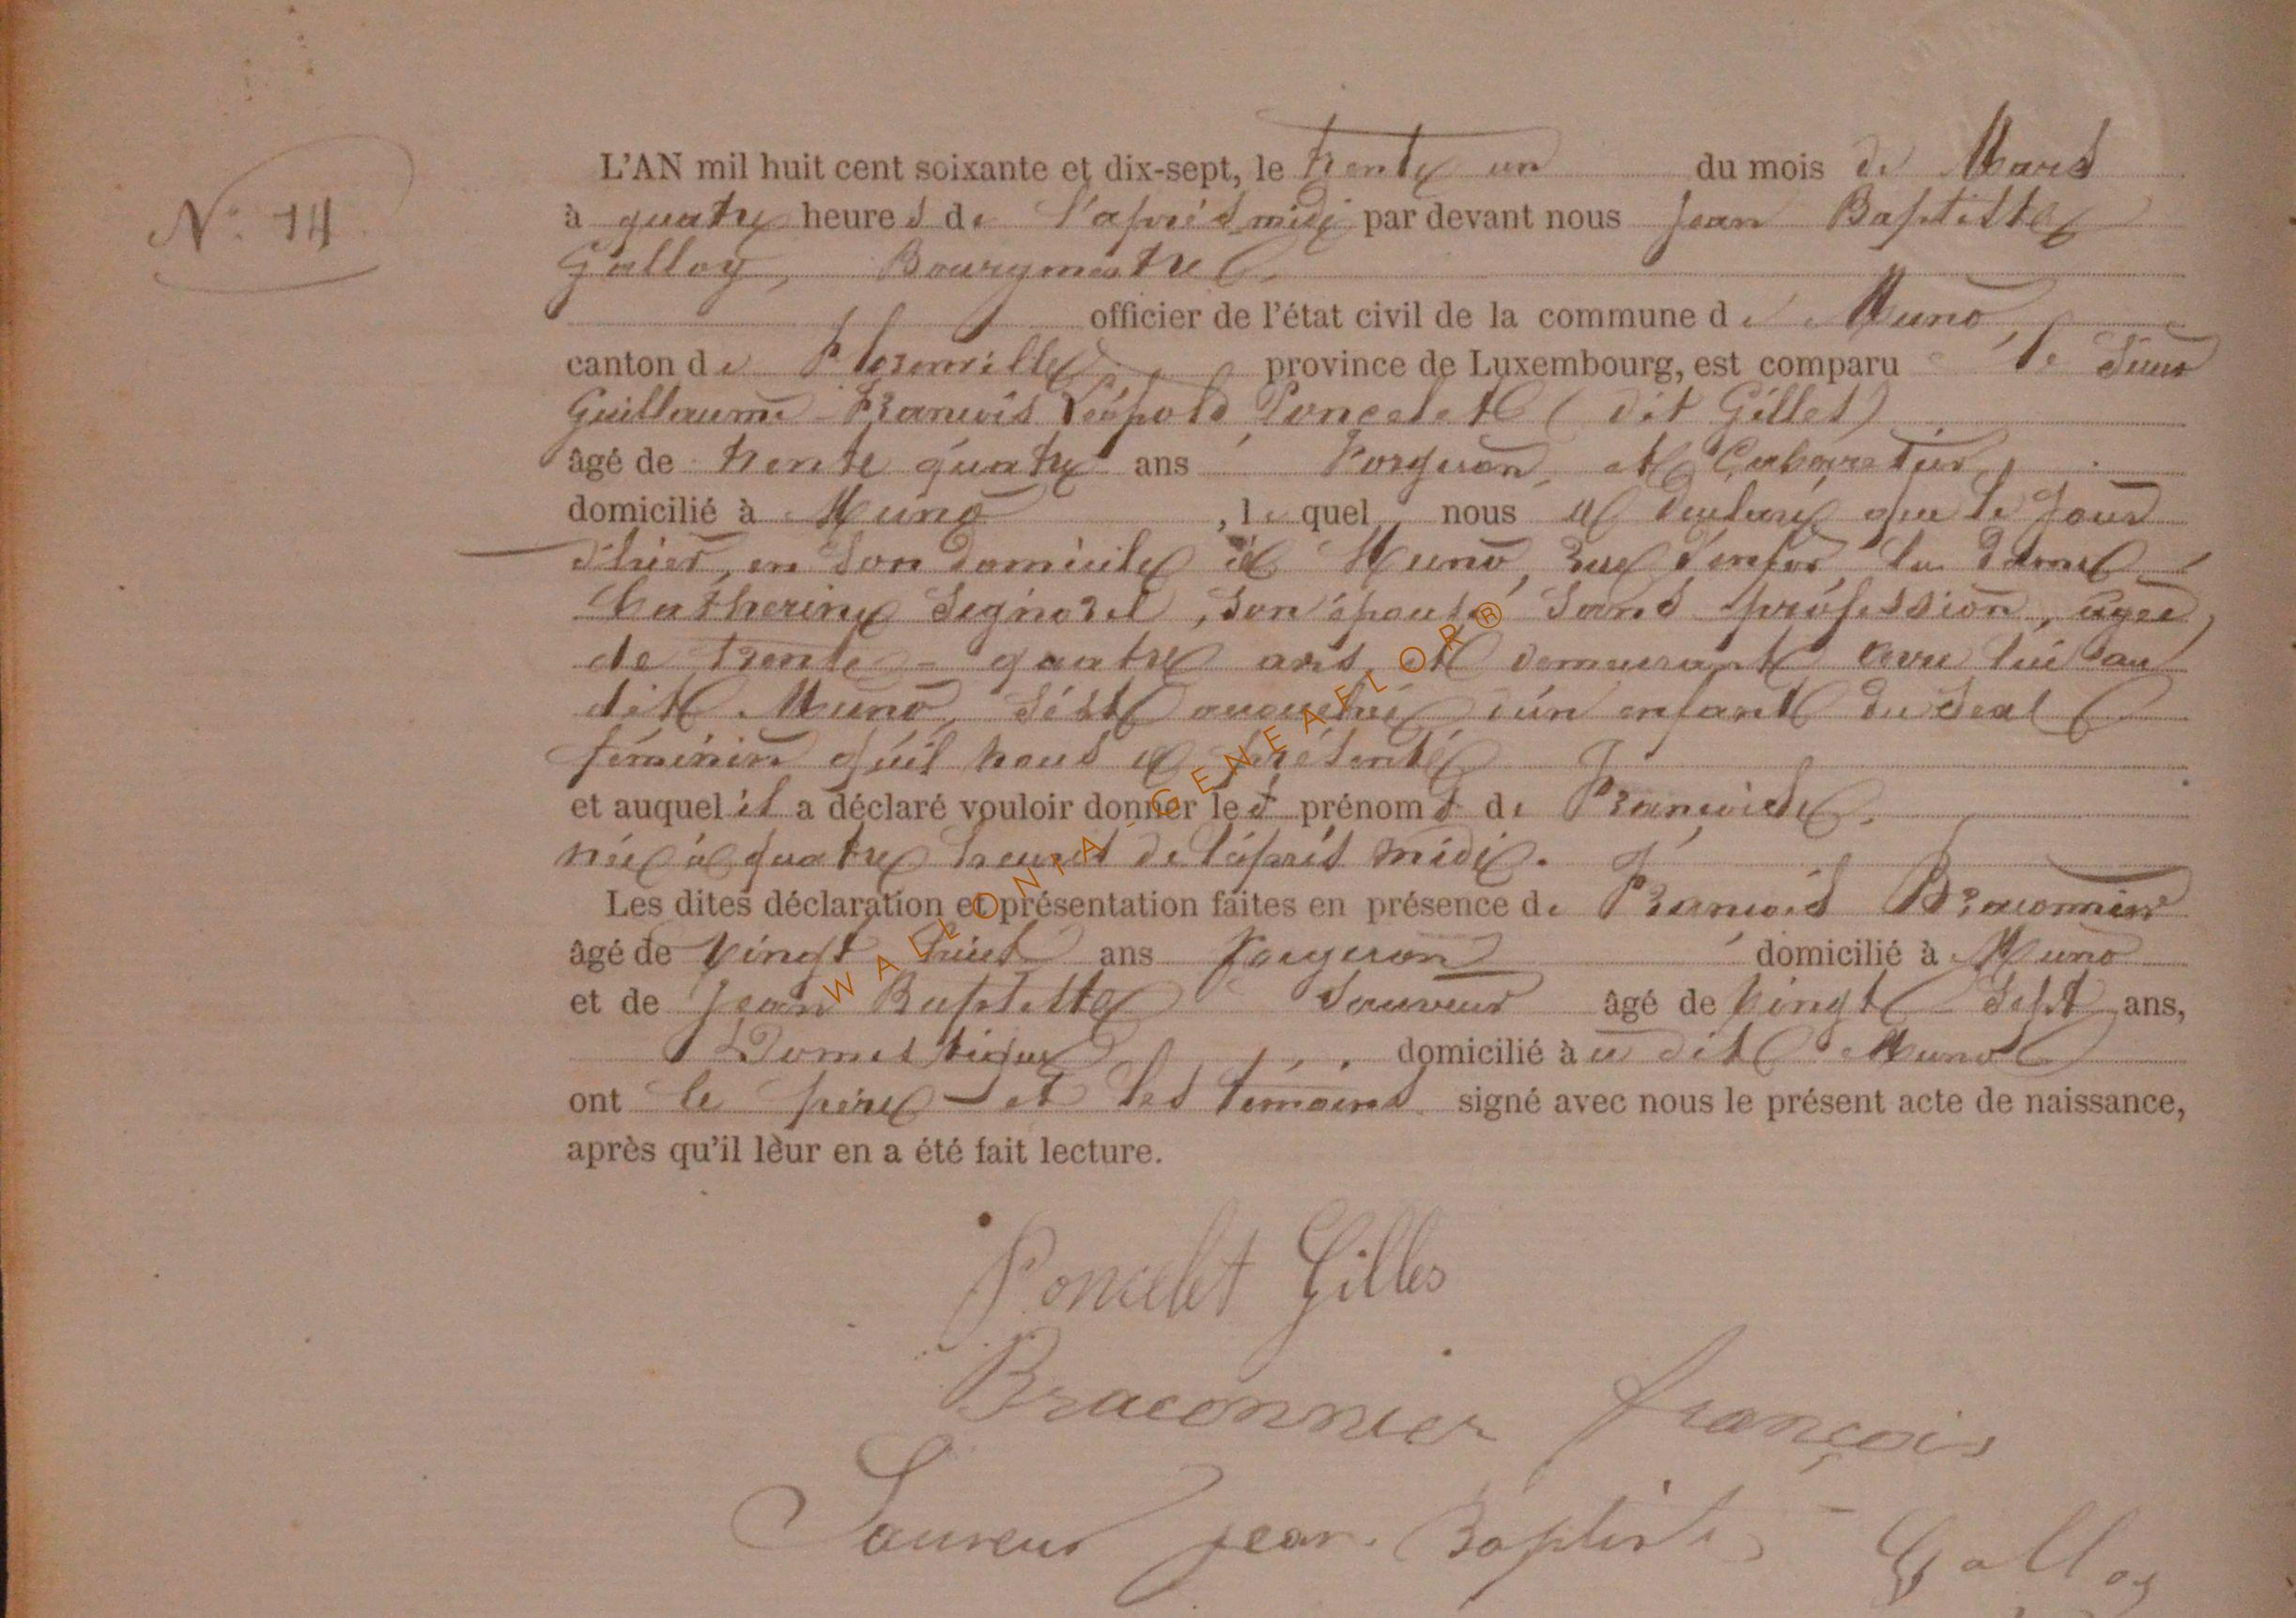 N° 14
L'AN mil huit cent soixante et dix-sept, le trente un du mois de Mars
à quatre heures de l'après midi par devant nous Jean Baptiste
Galloy, Bourgmestre
officier de l'état civil de la commune de Muno,
canton de Florenville, province de Luxembourg, est comparu le Sieur
Guillaume François Léopold Poncelet (dit Gillet)
âgé de trente quatre ans Forgeron, et Cabaretier,
domicilié à Muno, lequel nous a déclaré que le jour
d'hier, en son domicile à Muno, rue la dame
Catherine Signorel, son épouse sans profession, agée
de trente-quatre ans, et demeurant avec lui au
dit Muno, s'est accouchée d'un enfant du sexe
féminin qu'il nous a présenté
et auquel il a déclaré vouloir donner les prénoms de Françoise,
née à quatre heures de l'après midi.
Les dites déclaration et présentation faites en présence de François Braconnier
âgé de vingt huit ans Forgeron domicilié à Muno
et de Jean Baptiste Sauveur âgé de vingt-sept ans,
Domestique domicilié à u dit Muno
ont le père et les témoins signé avec nous le présent acte de naissance,
après qu'il lèur en a été fait lecture.
Poncelet Gilles
Braconnier françois
Sauveur jean Baptiste Galloy
WALLONIA-GENEAFLOR®